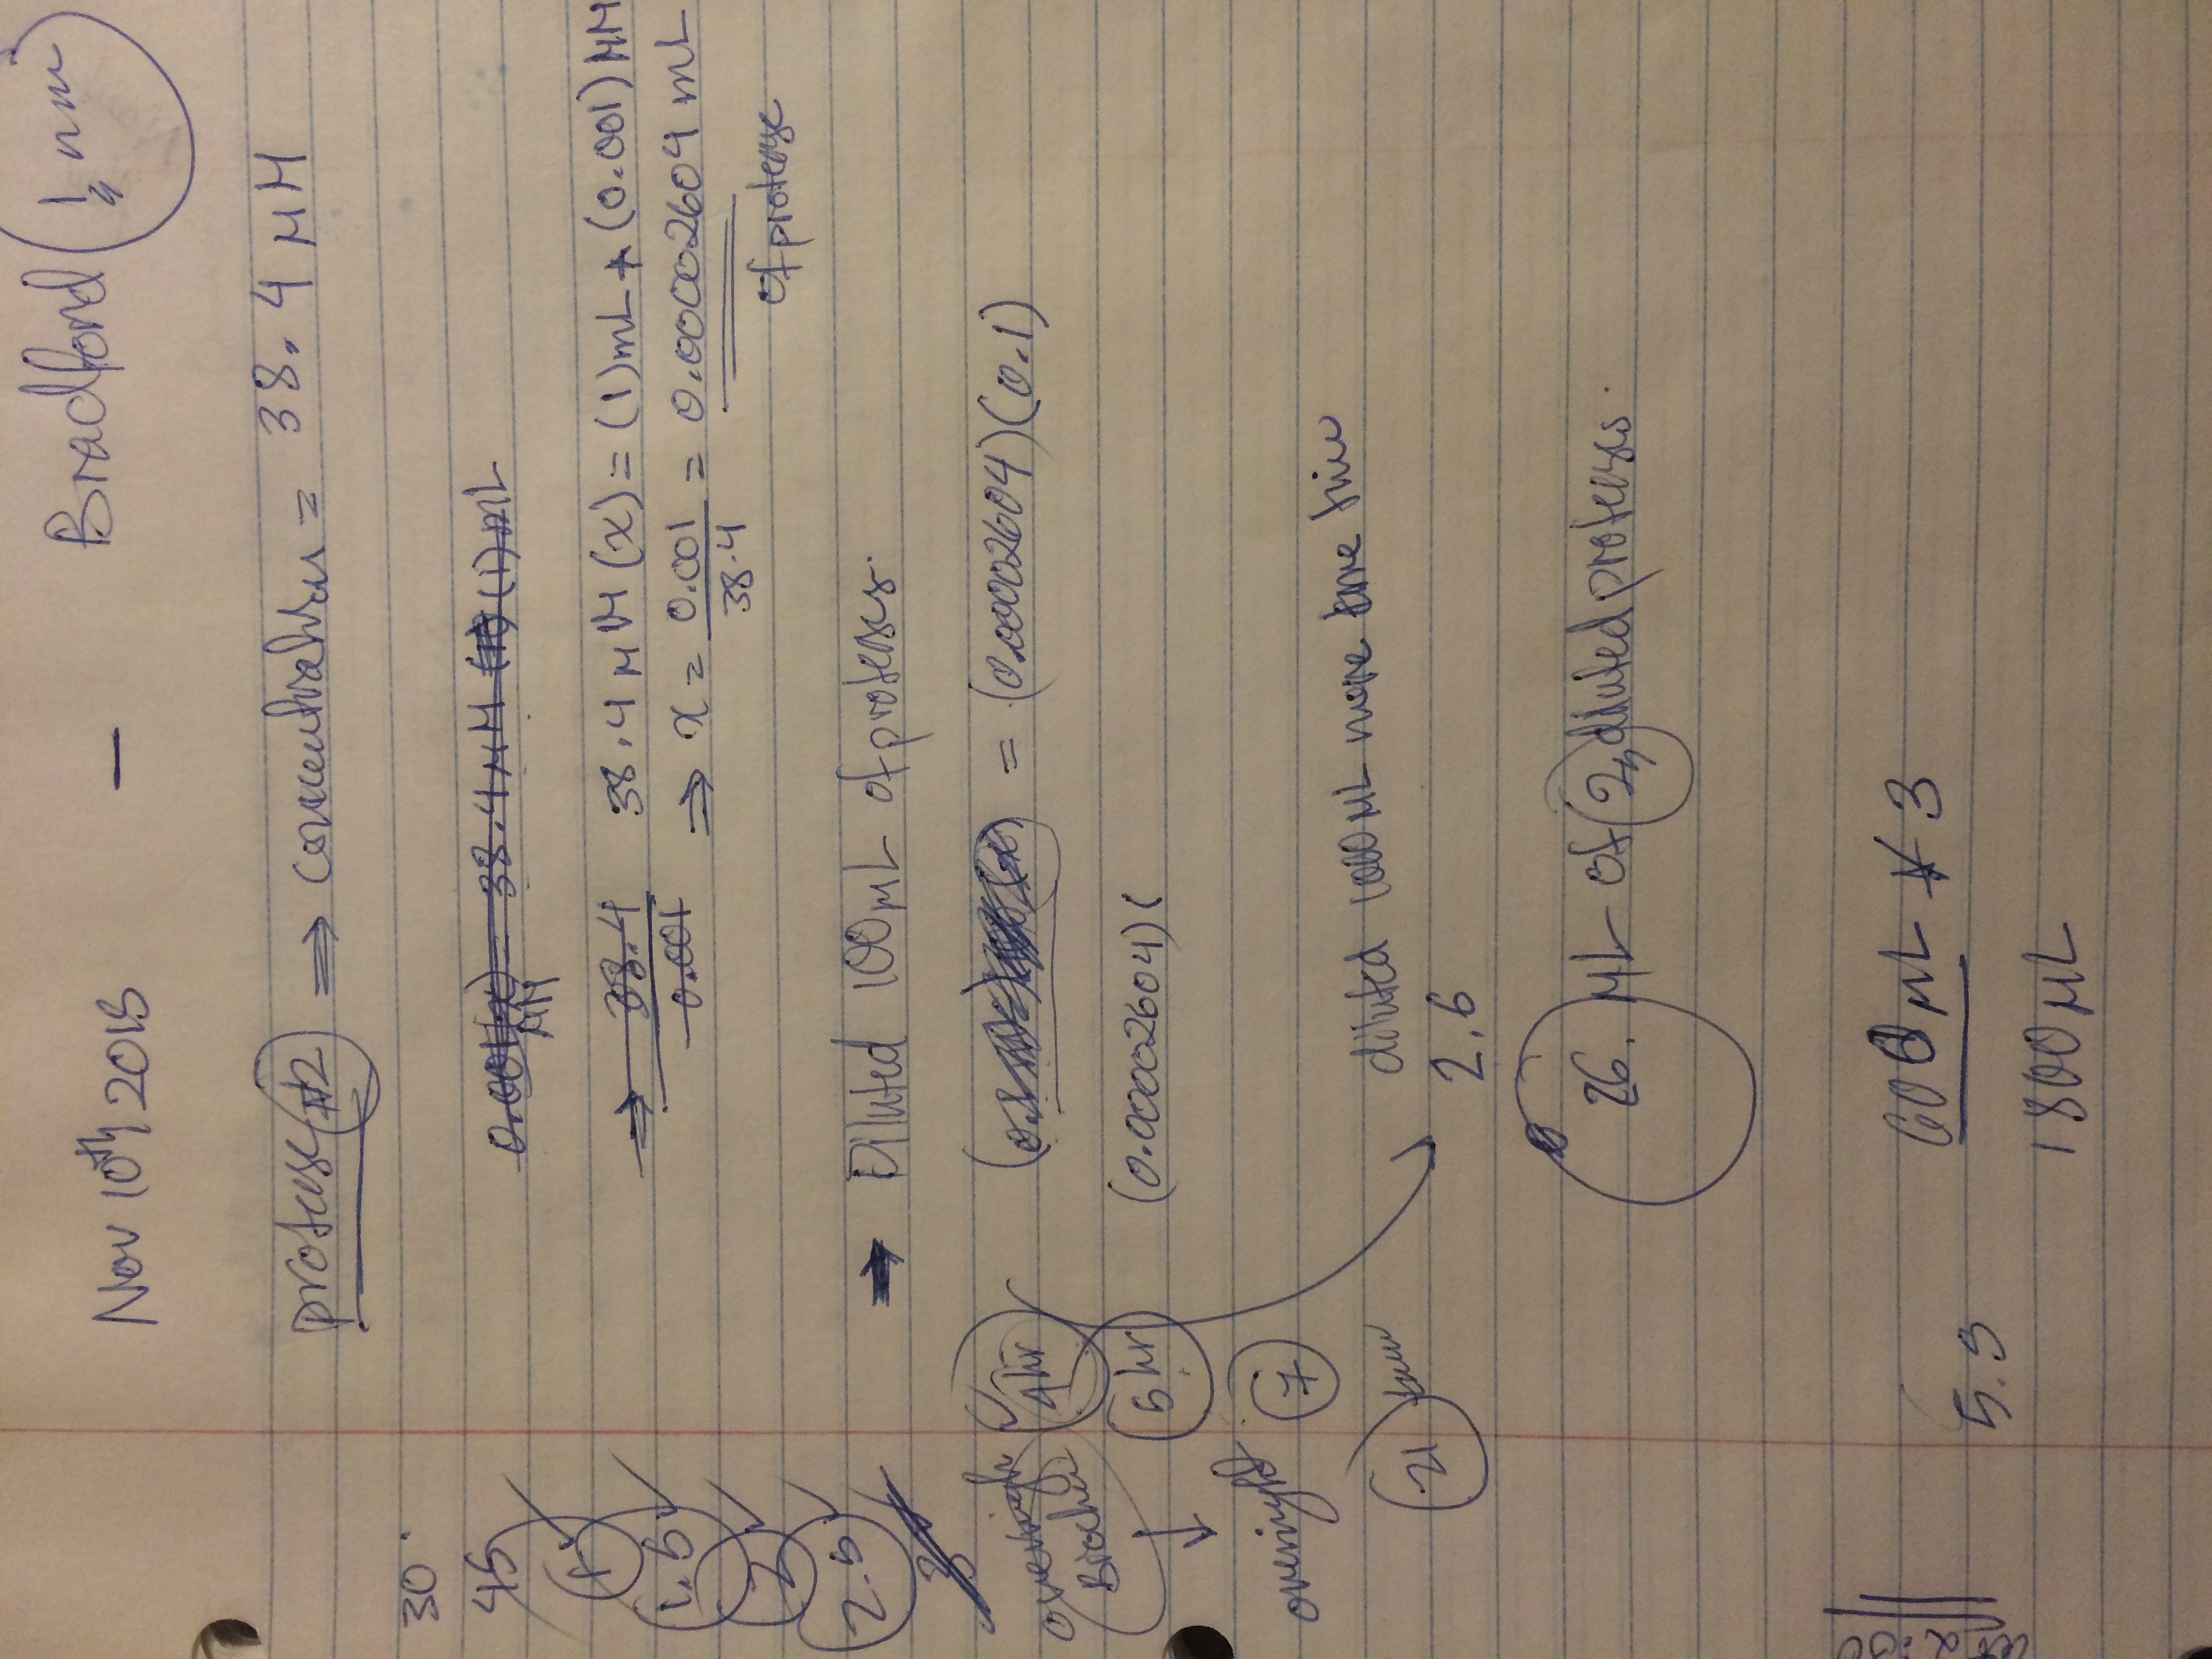 Nov 10th 2015 — Bradford (1/2 nm)
protease #2 ⇒ concentration = 38.4 μM
30.
45
0.001(x) = 38.4 μM (10 (1) mL
μM
1
⇒ 38.4
0.001
38.4 μM (x) = (1) mL * (0.001) μM
1.5
⇒ x = 0.001
38.4
= 0.00002604 mL
of protease
2
2.5
⇒ Diluted 100 μL of protease.
3
= (0.00002604)(0.1)
overnight
4hr
Bradford
6 hr
(0.00002604)(
overnight
7
21
diluted 1000 μL more
2.6
26. μL of 2, diluted protease.
600 μL * 3
5.3
1800 μL